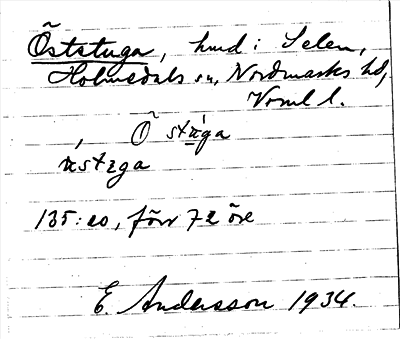 Öststuga, hmd i Selen,
Holmedals sn, Nordmarks hd,
Vrml l.
135:20, förr 72 öre
E. Andersson 1934.